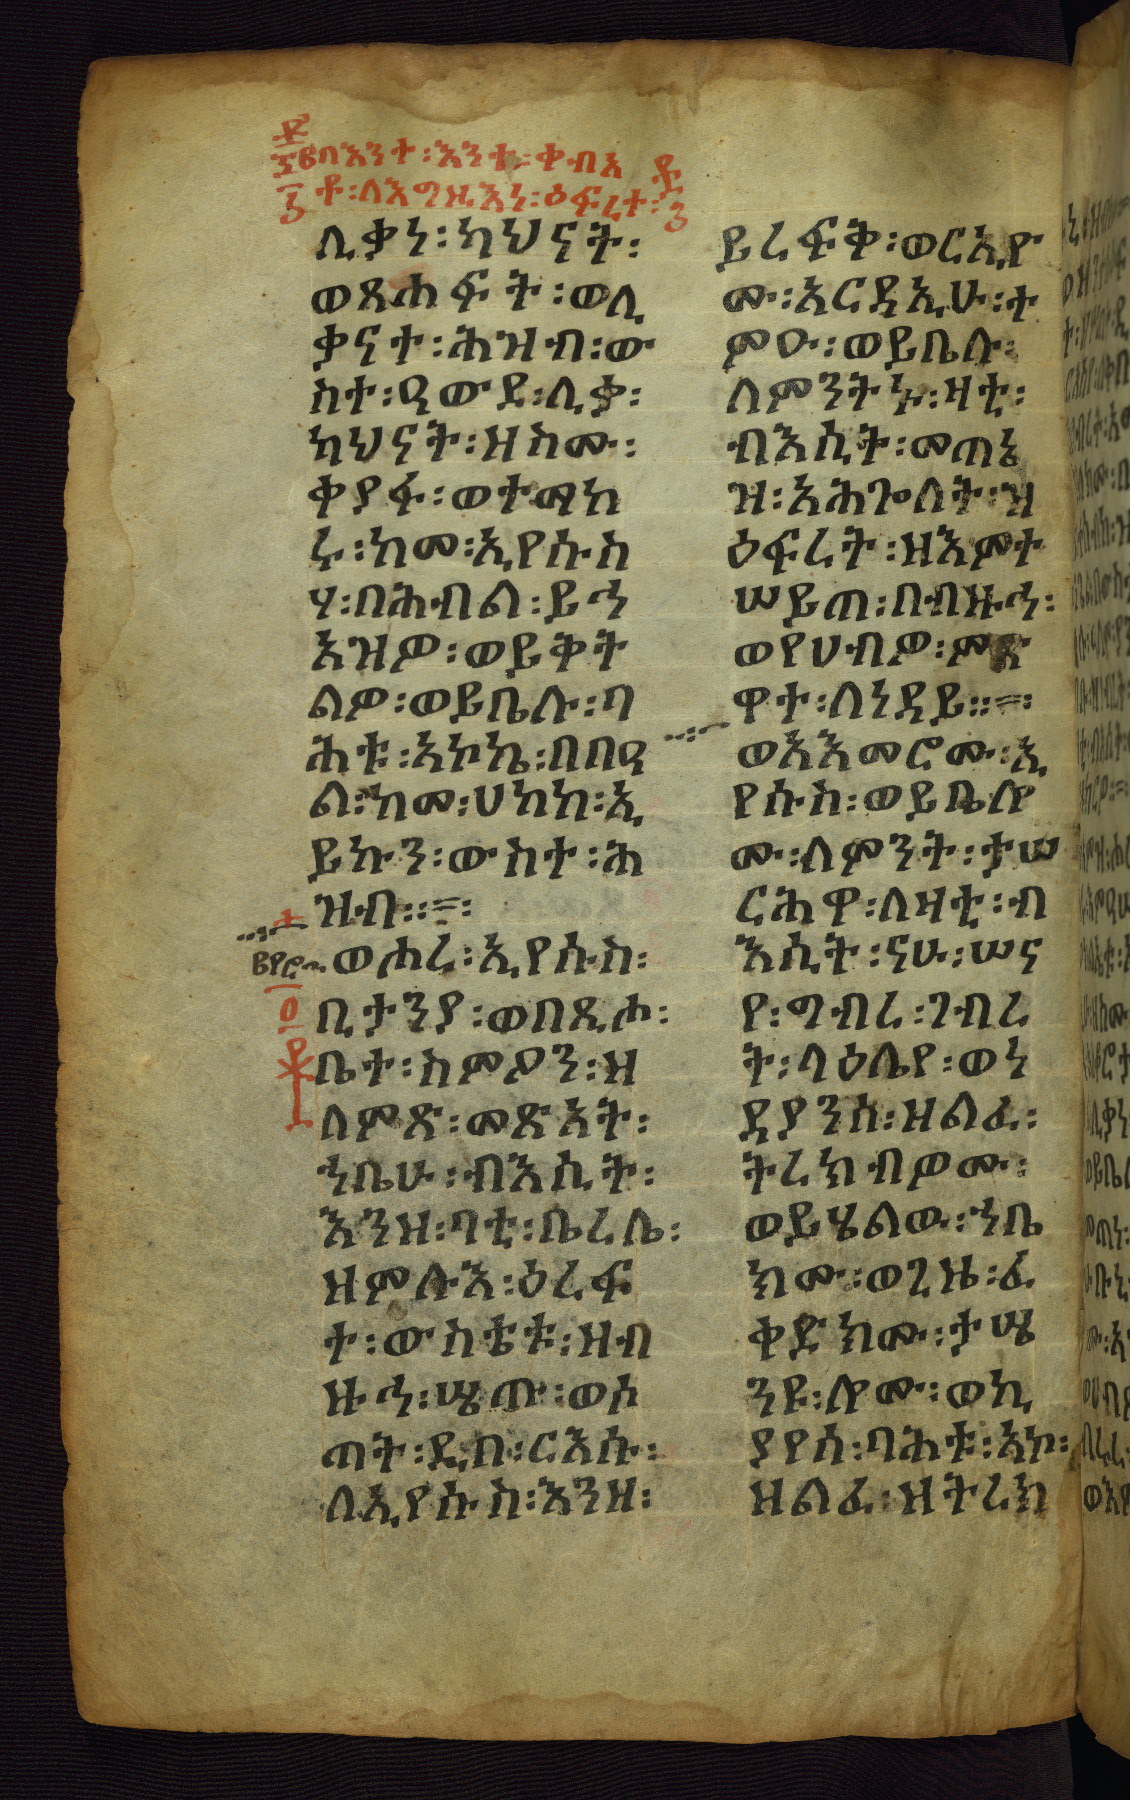 ፷
፲፮ በእንተ፡እንተ፡ቀብአ
ቶ፡ለእግዚእነ፡ዕፍረተ፡
ሊቃነ፡ካህናት፡
ወጸሐፍት፡ወሊ
ቃናተ፡ሕዝብ፡ው
ስተ፡ዓውደ፡ሊቃ፡
ካህናት፡ዘስሙ፡
ቀያፋ፡ወተማከ
ሩ፡ከመ፡ኢየሱስ
ሃ፡በሕብል፡ይኅ
እዝዎ፡ወይቅት
ልዎ፡ወይቤሉ፡ባ
ሕቱ፡አኮኬ፡በበዓ
ል፡ከመ፡ሀከከ፡ኢ
ይኩን፡ውስተ፡ሕ
ዝብ፡፡=፡
ወሐረ፡ኢየሱስ፡
ቢታንያ፡ወበጺሖ፡
ቤተ፡ስምዖን፡ዘ
ለምጽ፡መጽአት፡
ኀቤሁ፡ብእሲት፡
እንዘ፡ባቲ፡ቤረሌ፡
ዘምሉእ፡ዕረፍ
ተ፡ውስቴቱ፡ዘብ
ዙኅ፡ሤጡ፡ወሶ
ጠት፡ዲበ፡ርእሱ፡
ለኢየሱስ፡እንዘ፡
ይረፍቅ፡ወርእዮ
ሙ፡አርዳኢሁ፡ተ
ምዑ፡ወይቤሉ፡
ለምንትኑ፡ዛቲ፡
ብእሲት፡መጠነ
ዝ፡አሕጐለት፡ዝ
ዕፍረት፡ዘእምተ
ሠይጠ፡በብዙኅ፡
ወየሀብዎ፡ምጽ
ዋተ፡ለነዳይ፡፡=፡
ወአእመሮሙ፡ኢ
የሱስ፡ወይቤሎ
ሙ፡ለምንት፡ታሠ
ርሕዋ፡ለዛቲ፡ብ
እሲት፡ናሁ፡ሠና
የ፡ግብረ፡ገብረ
ት፡ላዕሌየ፡ወነ
ዳያንሰ፡ዘልፈ፡
ትረክብዎሙ፡
ወይሄልው፡ኀቤ
ክሙ፡ወጊዜ፡ፈ
ቀድክሙ፡ታሤ
ንዩ፡ሎሙ፡ወኪ
ያየሰ፡ባሕቱ፡አኮ፡
ዘልፈ፡ዘትረክ